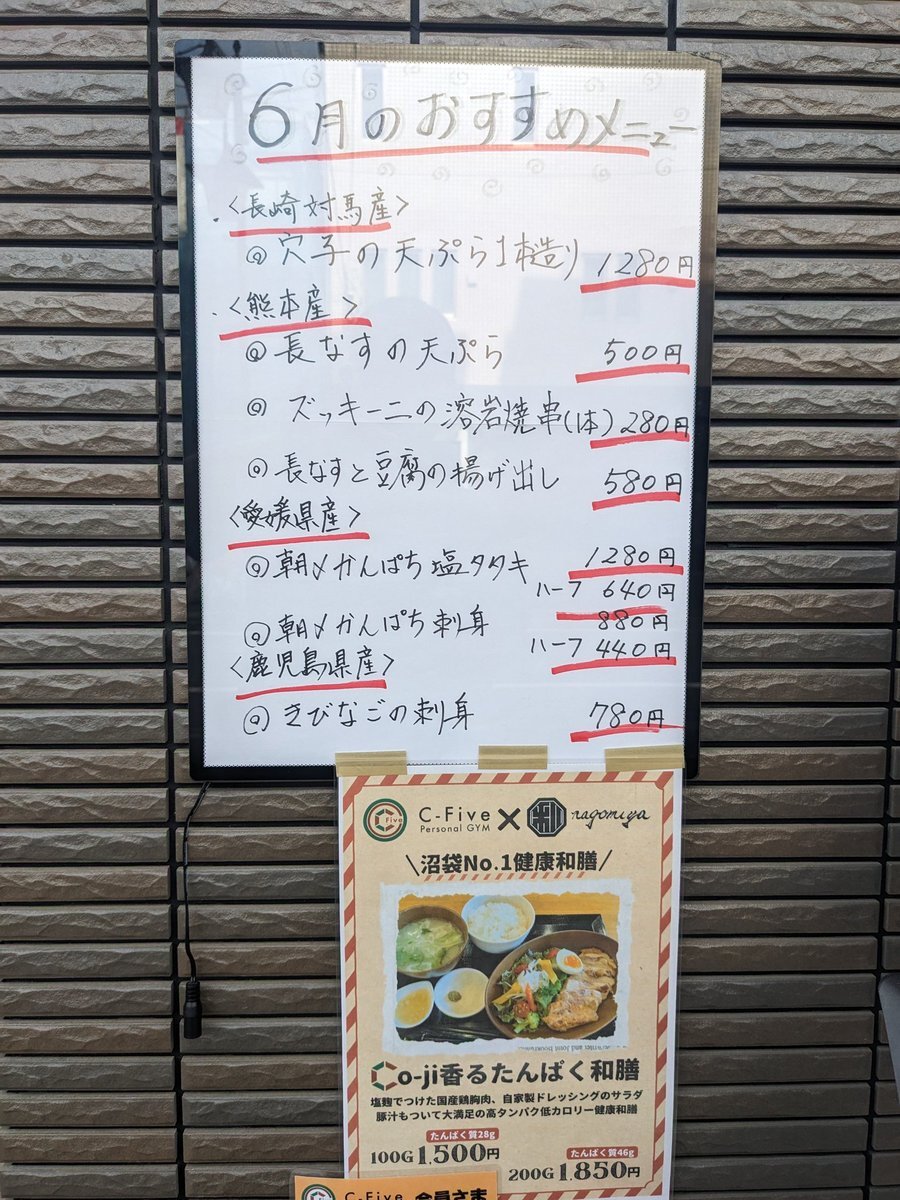 6月のおすすめメニュー
〈長崎対馬産〉
◎穴子の天ぷら1本造り 1280円
〈熊本産〉
◎長なすの天ぷら 500円
◎ズッキーニの溶岩焼串(1本) 280円
◎長なすと豆腐の揚げ出し 580円
〈愛媛県産〉
◎朝〆かんぱち塩タタキ 1280円
ハーフ 640円
◎朝〆かんぱち刺身 880円
ハーフ 440円
〈鹿児島県産〉
◎きびなごの刺身 780円
C Five C-Five × 和 nagomiya
Personal GYM
\沼袋No.1健康和膳/
Co-ji香るたんぱく和膳
塩麹でつけた国産鶏胸肉、自家製ドレッシングのサラダ
豚汁もついて大満足の高タンパク低カロリー健康和膳
たんぱく質28g
100G 1,500円
たんぱく質46g
200G 1,850円
C-Five 会員さま